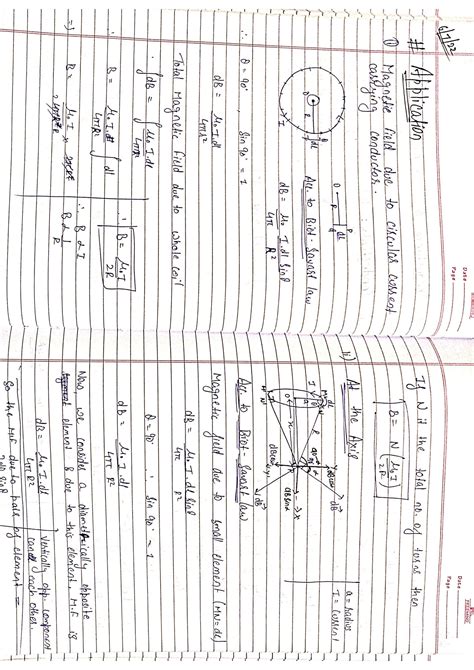 6/7/22
Date
Page
# Application
① Magnetic field due to circular current
carrying conductor.
Acc. to Biot-Savart law
dB = μ₀ I.dl sinθ
4π R²
∴ θ = 90° sin 90° = 1
dB = μ₀ I.dl
4πR²
Total Magnetic field due to whole coil
∫dB = ∫ μ₀ I.dl
4πR²
B = μ₀ I ∫dl
4πR²
⇒ B = μ₀ I ×
B = μ₀ I
2R
∴ B ∝ I
B ∝ 1
R
Date
Page
If N is the total no. of turns then
B = N (μ₀ I)
2R
ii) At the Axis
a = radius
I = current
Acc. to Biot-Savart law
Magnetic field due to small element (MN = dl)
dB = μ₀ I.dl sinθ
4π R²
θ = 90° ∴ sin 90° = 1
dB = μ₀ I.dl
4π R²
Now, we consider a diametrically opposite
element & due to this element, M.F is
dB = μ₀ I.dl
4π R²
Vertically opp. component
cancel each other.
So the M.F due to half by element =